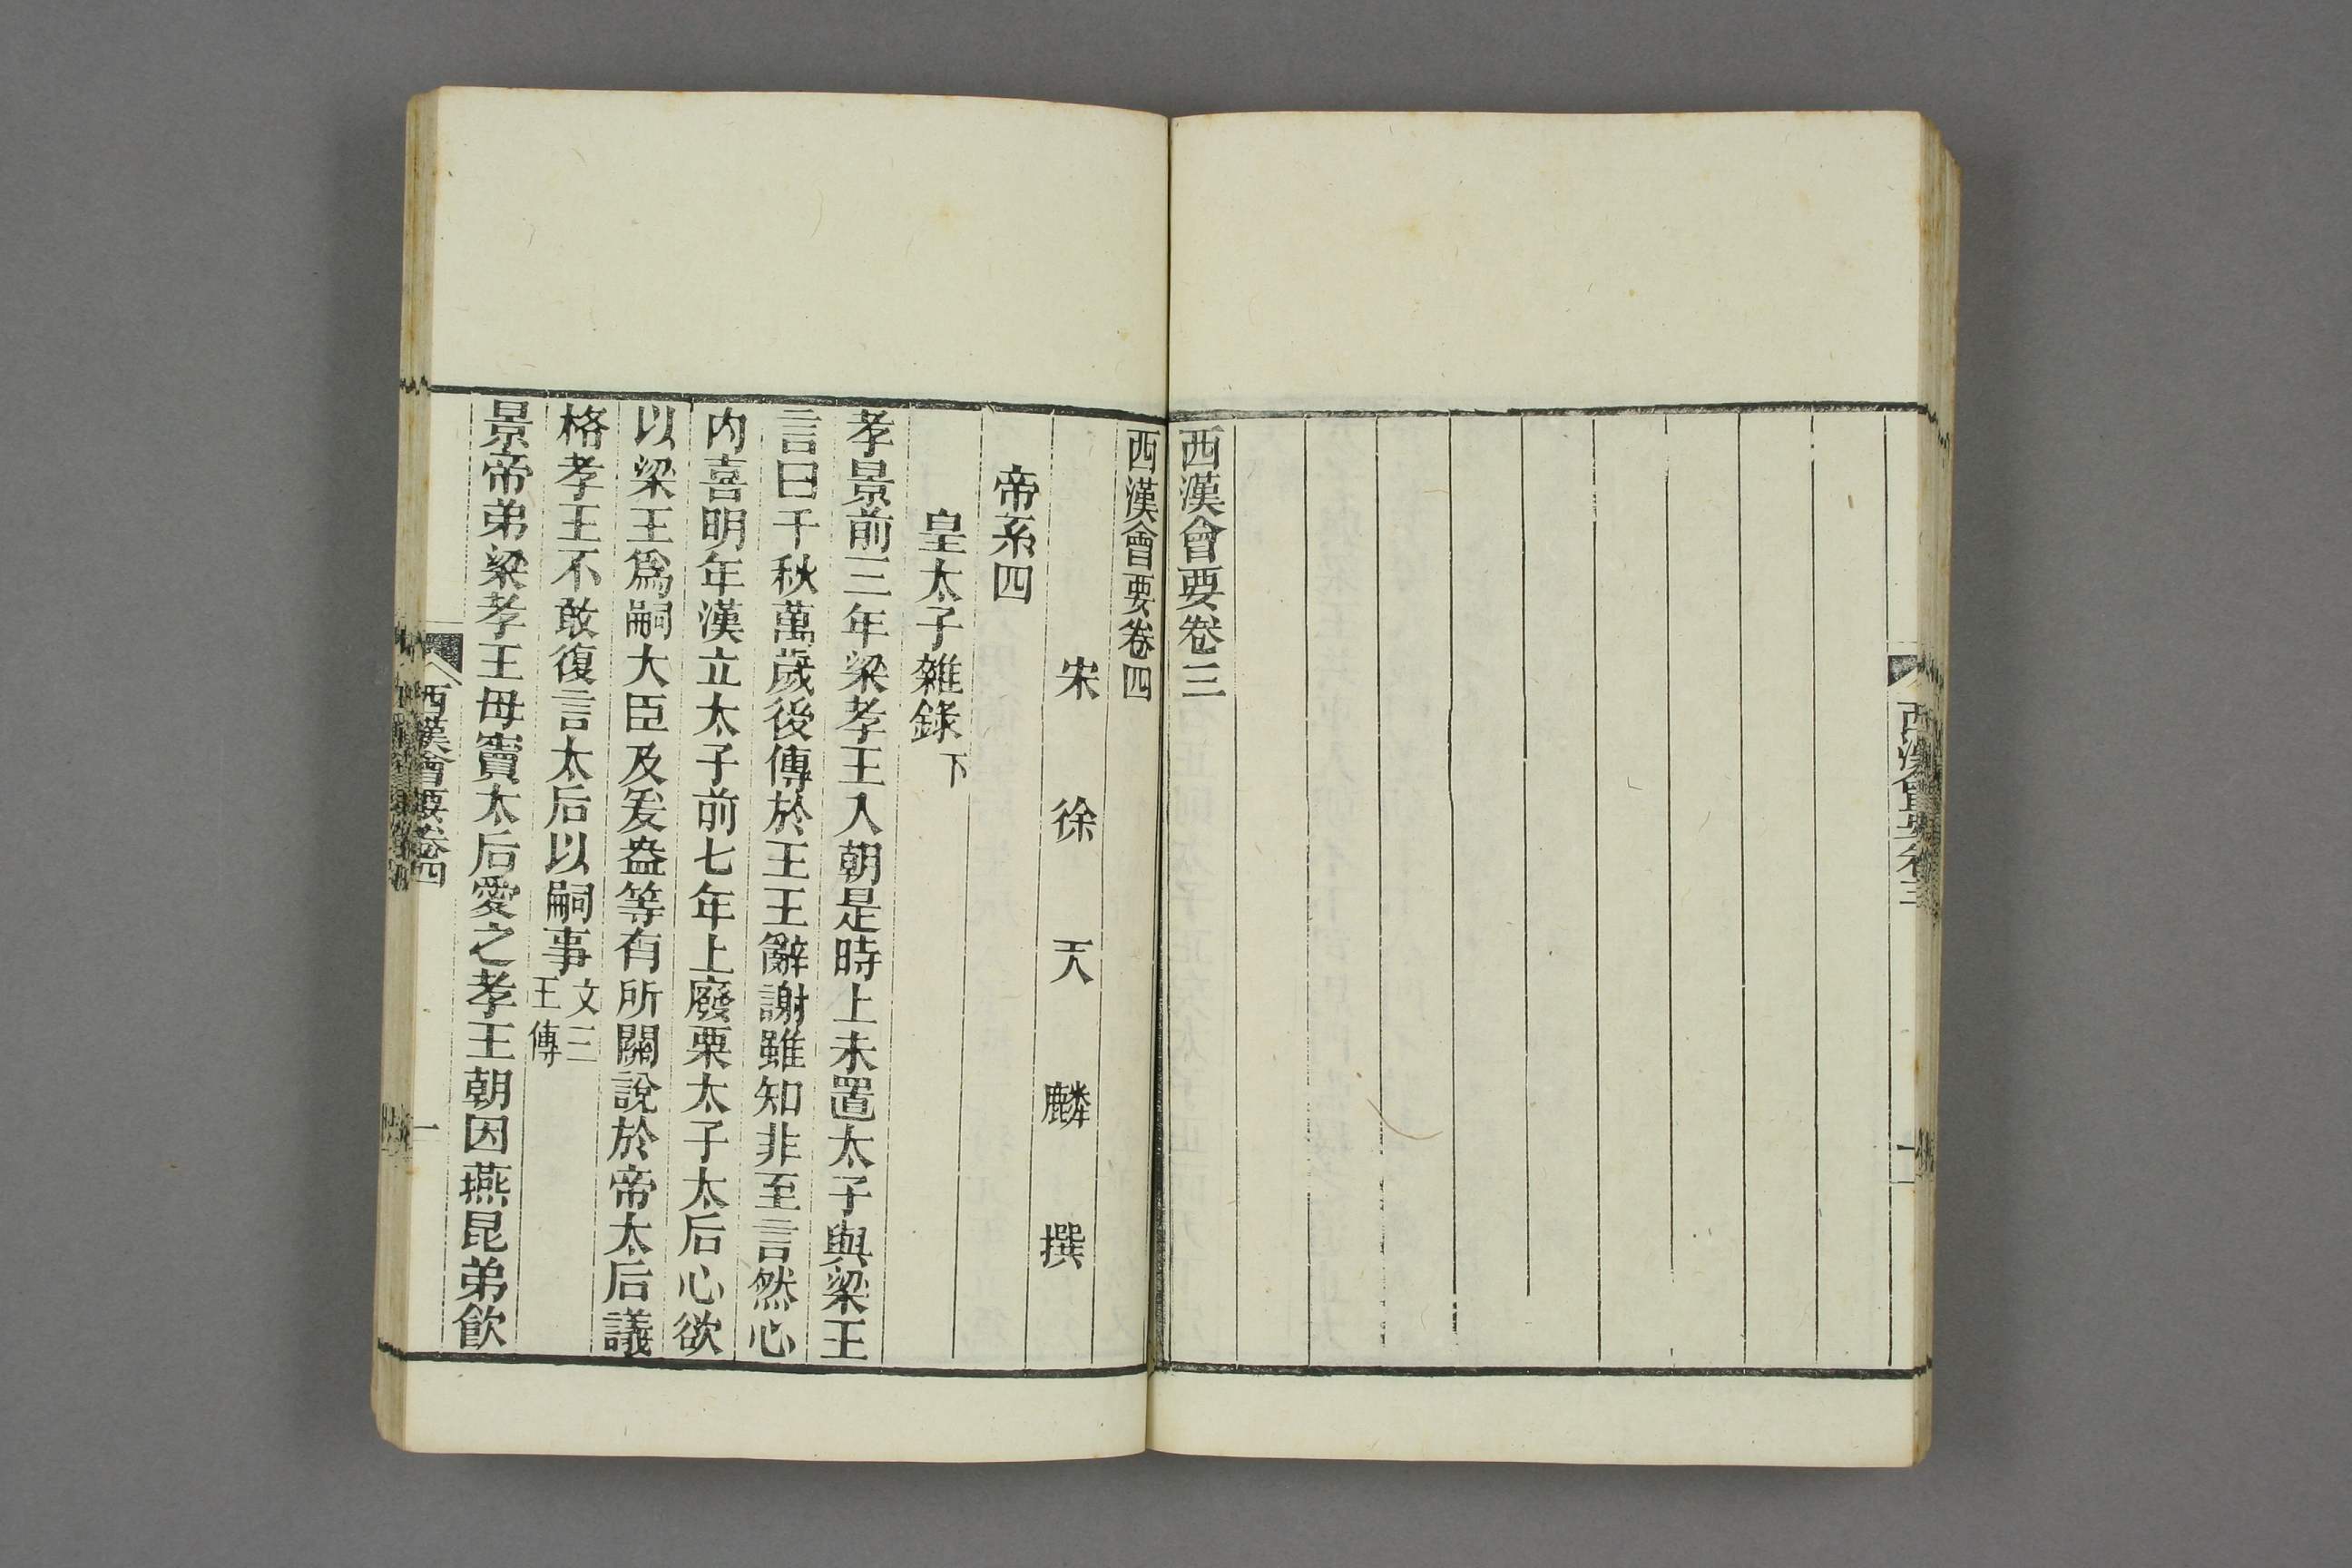 西漢會要卷三
西漢會要卷三
西漢會要卷四
宋徐天麟撰
帝系四
皇太子雜錄下
孝景前三年梁孝王入朝是時上未置太子與梁王
言曰千秋萬歲後傳於王王辭謝雖知非至言然心
内喜明年漢立太子前七年上廢栗太子太后心欲
以梁王爲嗣大臣及爰盎等有所關說於帝太后議
格孝王不敢復言太后以嗣事文三王傳
景帝弟梁孝王母竇太后愛之孝王朝因燕昆弟飲
西漢會要卷四
一